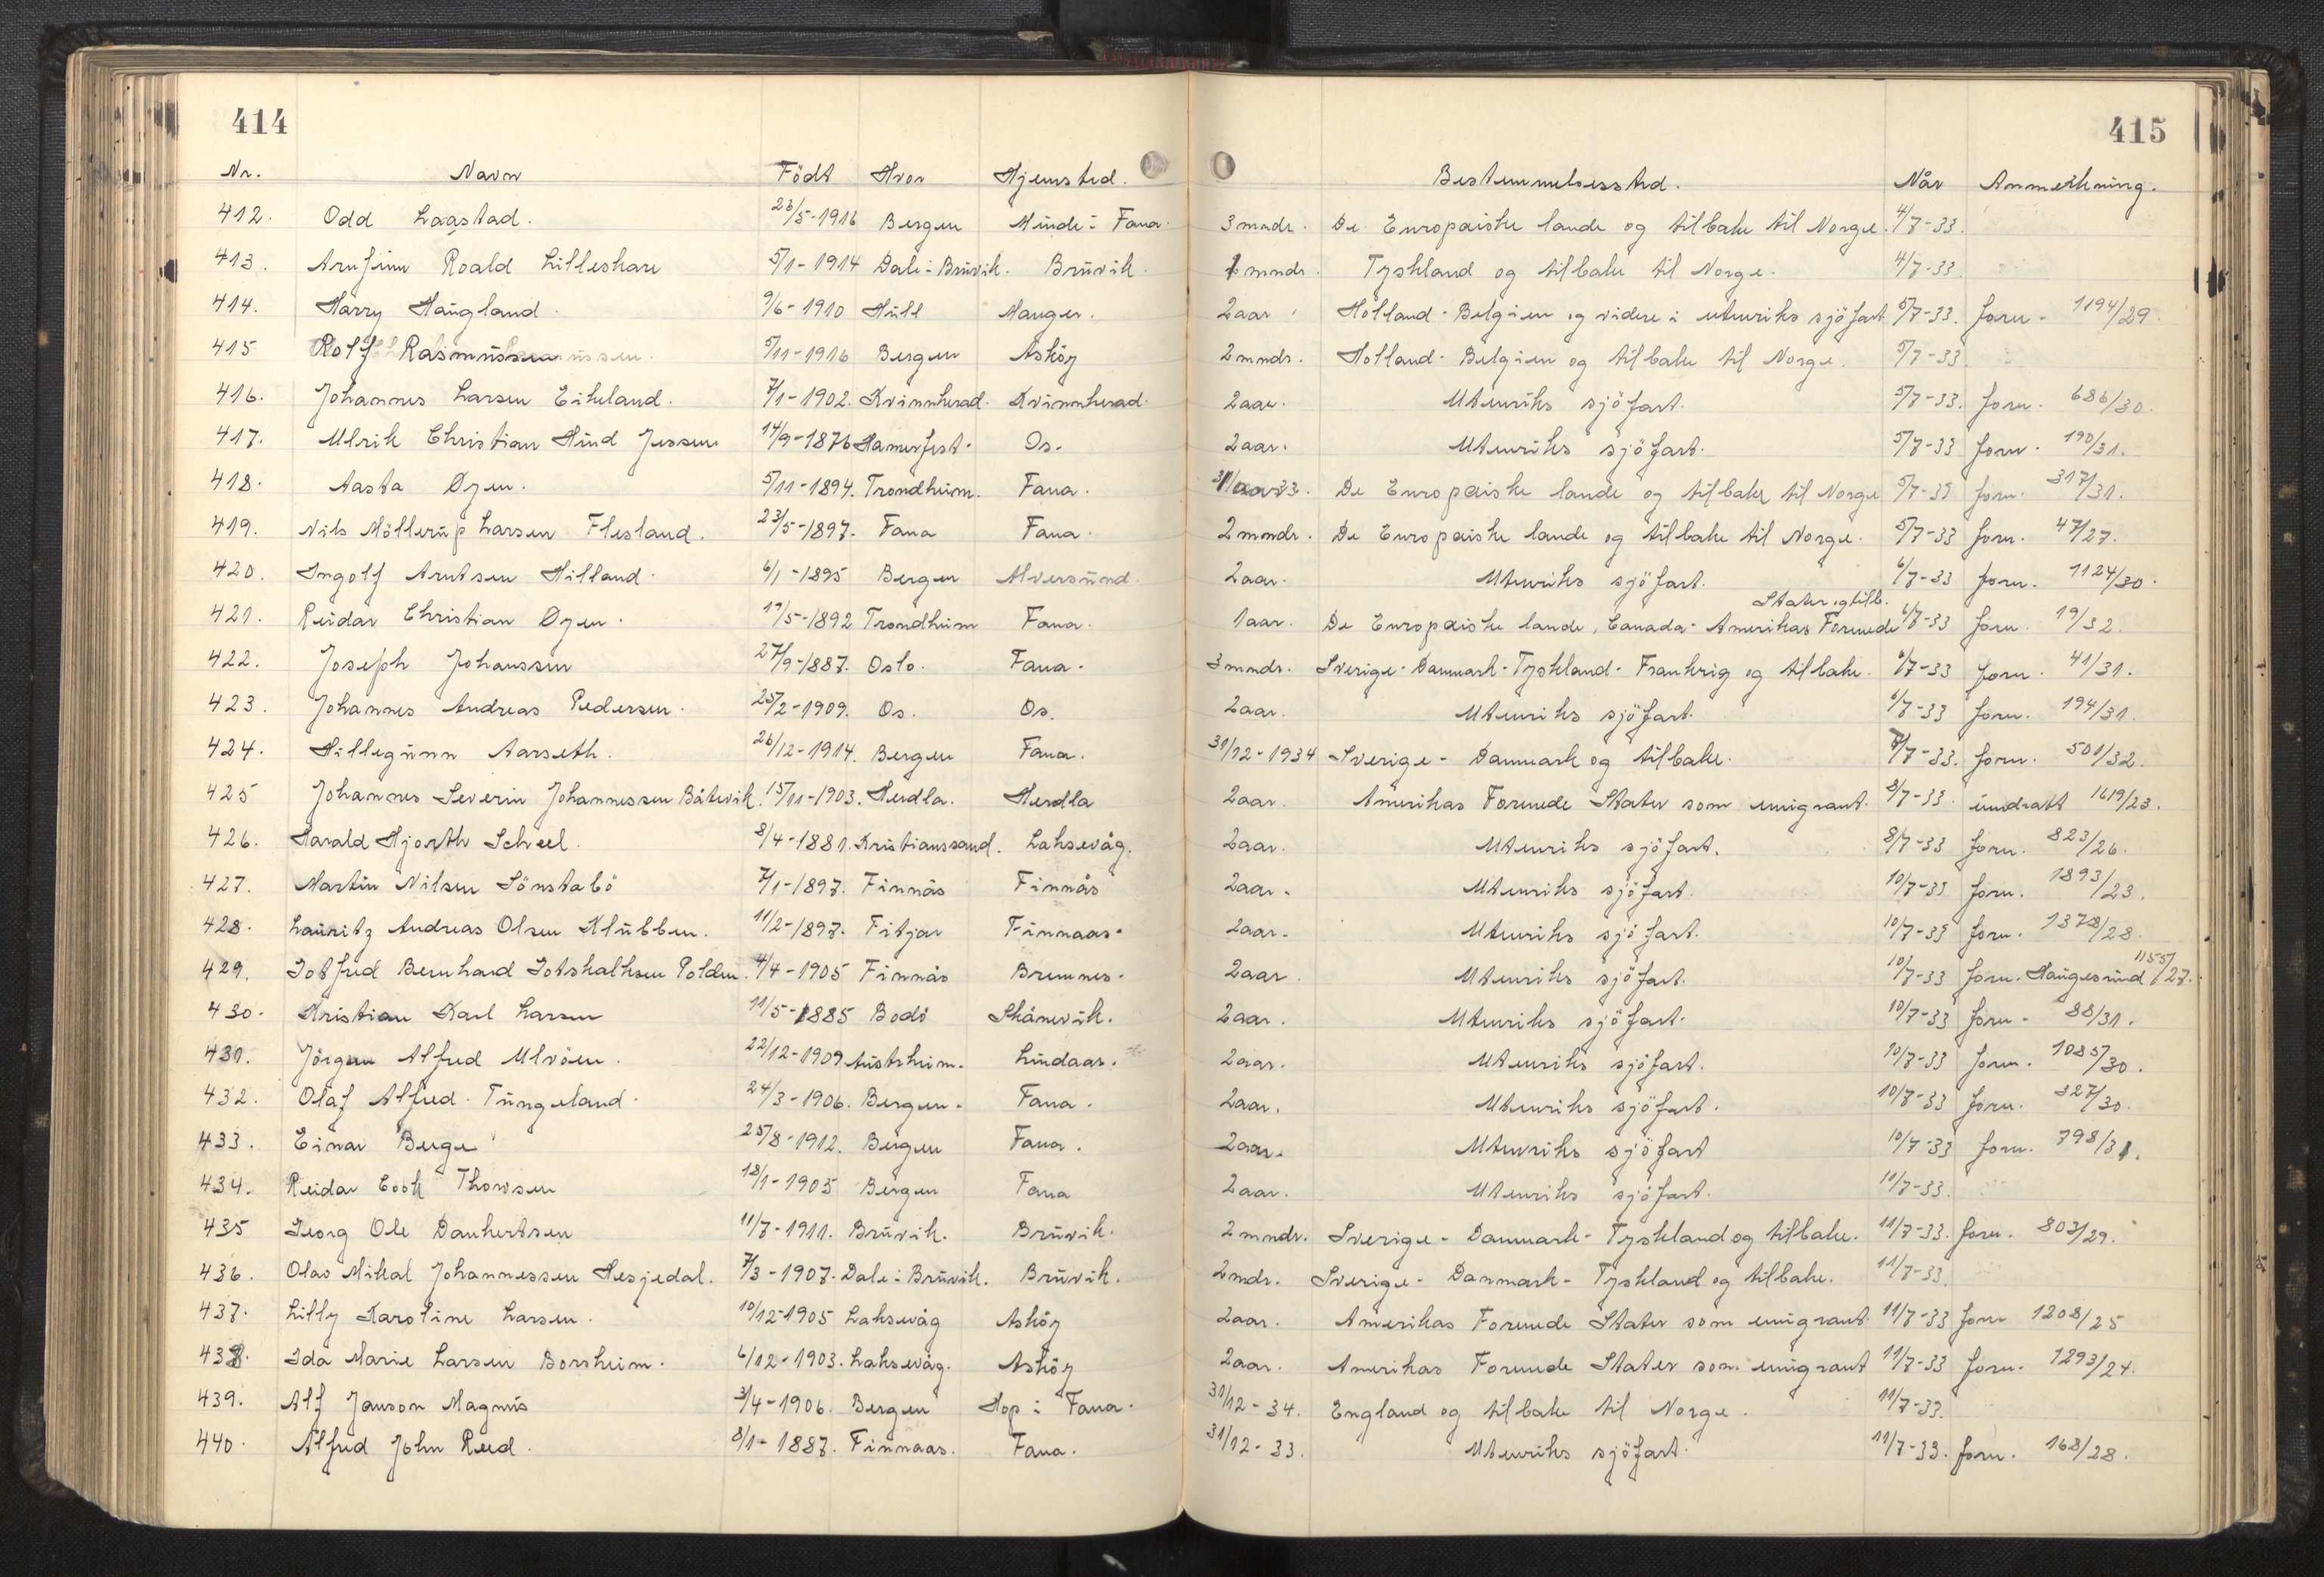 414
415
Nr. Navn Födt Hvor Hjemsted. Bestemmelsessted. Når Anmerkning.
412. Odd Laastad. 23/5-1916 Bergen Minde i Fana. 3 mndr. De Europæiske lande og tilbake til Norge. 4/7-33.
413. Arnfinn Roald Lilleskare 5/1-1914 Dale i Brüvik. Brüvik. 1 mndr. Tyskland og tilbake til Norge. 4/7-33
414. Harry Haügland. 9/6-1910 Hüll Manger. 2 aar. Holland-Belgien og videre i utenriks sjöfart 5/7-33. forn- 1194/29.
415 Rolf Rasmüssen 5/11-1916 Bergen Asköy 2 mndr. Holland-Belgien og tilbake til Norge. 5/7-33.
416. Johannes Larsen Eikeland. 7/1-1902. Kvinnherad. Kvinnherad. 2 aar. Utenriks sjöfart. 5/7-33. forn. 686/30.
417. Ulrik Christian Hind Jessen 14/9-1876 Hamerfest. Os. 2 aar. Utenriks sjöfart. 5/7-33 forn. 190/31.
418. Aasta Øyen. 5/11-1894. Trondheim. Fana. De Europæiske lande og tilbake til Norge 5/7-33 forn. 317/31.
419. Nils Möllerüp Larsen Flesland. 23/5-1897. Fana Fana. 2 mndr. De Europæiske lande og tilbake til Norge. 5/7-33 forn. 47/27.
420. Ingolf Arntsen Hilland. 6/1-1895 Bergen Alversünd. 2 aar. Utenriks sjöfart. 6/7-33 forn. 1124/30.
Stater og tilb.
421. Reidar Christian Øyen. 19/5-1892 Trondheim Fana. 1 aar. De Europæiske lande, Canada-Amerikas Forenede 6/7-33 forn. 19/32.
422. Joseph Johanssen 27/9-1887. Oslo. Fana. 3 mndr. Sverige-Danmark-Tyskland-Frankrig og tilbake. 6/7-33 forn. 41/31.
423. Johannes Andreas Pedersen. 25/2-1909. Os. Os. 2 aar. Utenriks sjöfart. 6/7-33 forn. 194/31.
424. Hillegünn Aarseth. 26/12-1914. Bergen Fana. 31/12-1934 Sverige-Danmark og tilbake. 8/7-33. forn. 501/32.
425 Johannes Severin Johannessen Båtevik. 15/11-1903. Herdla. Herdla 2 aar. Amerikas Forenede Stater som emigrant. 8/7-33. inndratt 1619/23.
426. Harald Hjorth Scheel. 8/4-1881. Kristianssand. Laksevåg. 2 aar. Utenriks sjöfart. 8/7-33 forn. 823/26.
427. Martin Nilsen Sönstabö 7/1-1897. Finnås Finnås 2 aar. Utenriks sjöfart. 10/7-33 forn. 1893/23.
428. Laüritz Andreas Olsen Klübben. 11/2-1897. Fitjar Finnaas. 2 aar. Utenriks sjöfart. 10/7-33 forn. 1378/28.
429. Gotfred Bernhard Gotskalksen Polden. 4/4-1905 Finnås Bremnes. 2 aar. Utenriks sjöfart. 10/7-33 forn. Haügesünd 1155/27.
430. Kristian Karl Larsen 11/5-1885 Bodö Skånevik. 2 aar. Utenriks sjöfart. 10/7-33 forn. 88/31.
431. Jörgen Alfred Ulvöen. 22/12-1909 Aüstrheim. Lindaas. 2 aar. Utenriks sjöfart. 10/7-33 forn. 1085/30.
432. Olaf Alfred Tüngeland. 24/3-1906. Bergen. Fana. 2 aar. Utenriks sjöfart. 10/7-33 forn. 327/30.
433. Einar Berge 25/8-1912. Bergen Fana. 2 aar. Utenriks sjöfart 10/7-33 forn. 798/31.
434. Reidar Cook Thowsen 18/1-1905 Bergen Fana 2 aar. Utenriks sjöfart. 11/7-33.
435 Georg Ole Dankertsen 11/7-1911. Brüvik. Brüvik. 2 mndr. Sverige-Danmark-Tyskland og tilbake. 11/7-33. forn. 803/29.
436. Olav Mikal Johannessen Hesjedal. 7/3-1907. Dale i Brüvik. Brüvik. 2 mdr. Sverige-Danmark-Tyskland og tilbake. 11/7-33.
437. Lilly Karoline Larsen. 10/12-1905 Laksevåg Asköy 2 aar. Amerikas Forenede Stater som emigrant. 11/7-33 forn 1208/25
438. Ida Marie Larsen Borsheim. 6/12-1903. Laksevåg. Asköy 2 aar. Amerikas Forenede Stater som emigrant 11/7-33 forn. 1293/24.
439. Alf Janson Magnüs 3/4-1906. Bergen Hop i Fana. 31/12-34. England og tilbake til Norge. 11/7-33.
440. Alfred John Reed. 8/1-1887. Finnaas. Fana. 31/12-33. Utenriks sjöfart. 11/7-33. forn. 168/28.